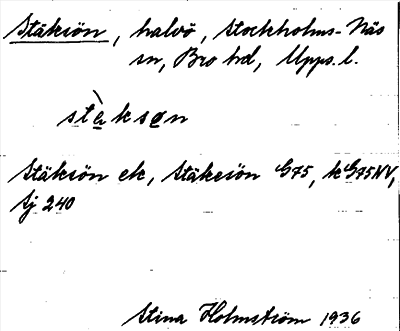 Stäksön, halvö, Stockholms-Näs
sn, Bro hd, Upps. l.
stὰksən
Stäksön ek, Stäkesön G75, k G75NV,
Sj 240
Stina Holmström 1936